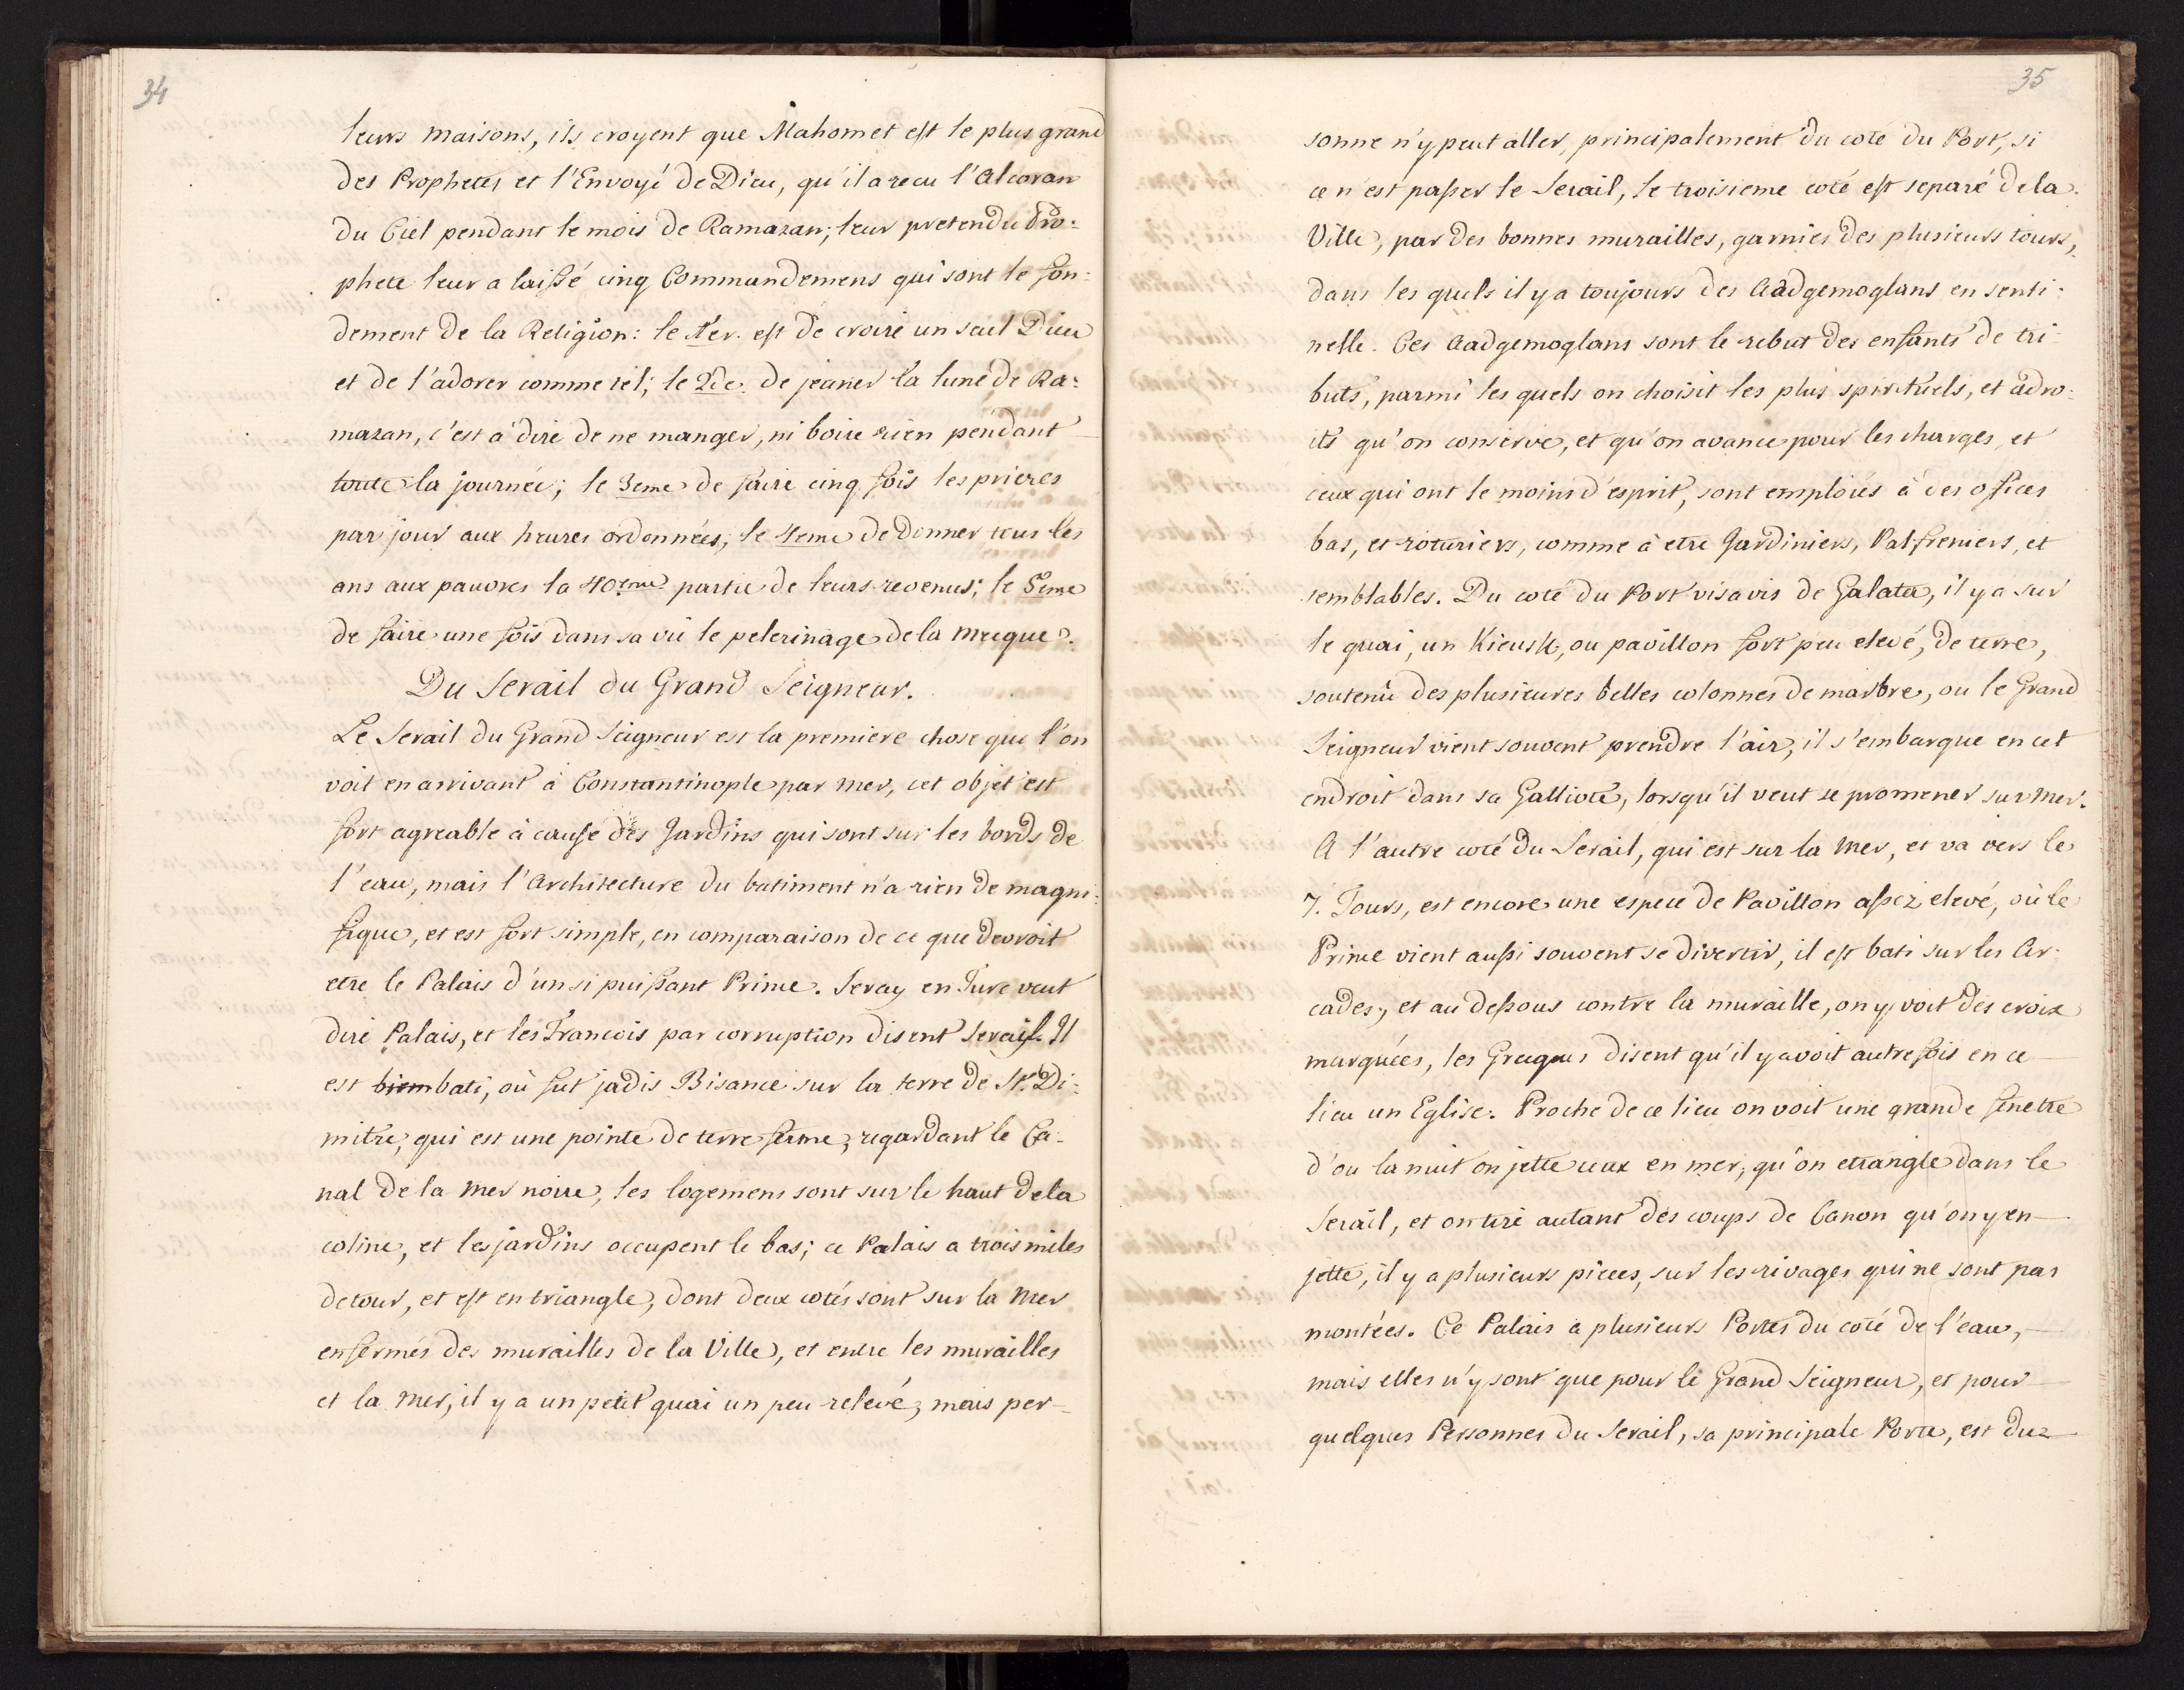 34
leurs maisons, ils croyent que Mahomet est le plus grand
des Prophetes et l'Envoyé de Dieu, qu'il a recu l'Alcoran
du Ciel pendant le mois de Ramazan; leur pretendu Pro=
phete leur a laissé cinq Commandemens qui sont le fon=
dement de la Religion: le 1er. est de croire un seul Dieu
et de l'adorer comme tel; le 2de. de jeaner la lune de Ra=
mazan, c'est a dire de ne manger, ni boire rien pendant
toute la journée; le 3eme de faire cinq fois les prieres
par jour aux heures ordonnées; le 4eme de donner tous les
ans aux pauvres la 40eme partie de leurs revenus; le 5eme
de faire une fois dans sa vie le pelerinage de la Meque.
Du Serail du Grand Seigneur.
Le Serail du Grand Seigneur est la premiere chose que l'on
voit en arrivant à Constantinople par mer, cet objet est
fort agreable à cause des Jardins qui sont sur les bords de
l'eau, mais l'Architecture du batiment n'a rien de magni=
fique, et est fort simple, en comparaison de ce que devroit
etre le Palais d'un si puissant Prince. Seray en Turc veut
dire Palais, et les Francois par corruption disent Serail. Il
est bati, où fut jadis Bisance sur la terre de St. Di=
mitre, qui est une pointe de terre ferme, regardant le Ca=
nal de la Mer noire, les logemens sont sur le haut de la
coline, et les jardins occupent le bas; ce Palais a trois miles
de tour, et est en triangle, dont deux cotés sont sur la Mer
enfermés des murailles de la Ville, et entre les murailles
et la Mer, il y a un petit quai un peu relevé, mais per=
35
sonne n'y peut aller, principalement du coté du Port, si
ce n'est passer le Serail, le troisieme coté est separé de la
Ville, par des bonnes murailles, garnies des plusieurs tours,
dans les quels il y a toujours des Aadgemoglans en senti=
nelle. Ces Aadgemoglans sont le rebut des enfants de tri=
buts, parmi les quels on choisit les plus spirituels, et adro=
its qu'on conserve, et qu'on avance pour les charges, et
ceux qui ont le moins d'esprit, sont emploiés à des offices
bas, et roturiers, comme à etre Jardiniers, Palfreniers, et
semblables. Du coté du Port vis a vis de Galata, il y a sur
le quai, un Kieusk, ou pavillon fort peu elevé, de terre,
soutenû des plusieures belles colonnes de marbre, ou le Grand
Seigneur vient souvent prendre l'air, il s'embarque en cet
endroit dans sa Galliote, lorsqu'il veut se promener sur mer.
A l'autre coté du Serail, qui est sur la Mer, et va vers le
7. Tours, est encore une espece de Pavillon assez elevé, où le
Prince vient aussi souvent se divertir, il est bati sur les Ar=
cades, et au dessous contre la muraille, on y voit des croix
marquées, les Greques disent qu'il y avoit autrefois en ce
lieu un Eglise. Proche de ce lieu on voit une grande fenetre
d'ou la nuit on jette ceux en mer, qu'on etrangle dans le
Serail, et on tire autant des coups de Canon qu'on y en
jette, il y a plusieurs pieces, sur les rivages qui ne sont pas
montées. Ce Palais a plusieurs Portes du coté de l'eau,
mais elles n'y sont que pour le Grand Seigneur, et pour
quelques Personnes du Serail, sa principale Porte, est du